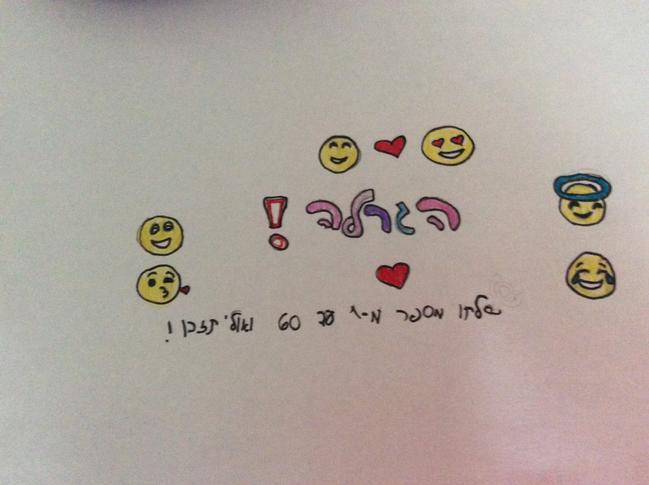 הגרלה!
שלחו מספר מ-1 עד 60 ואולי תזכו!